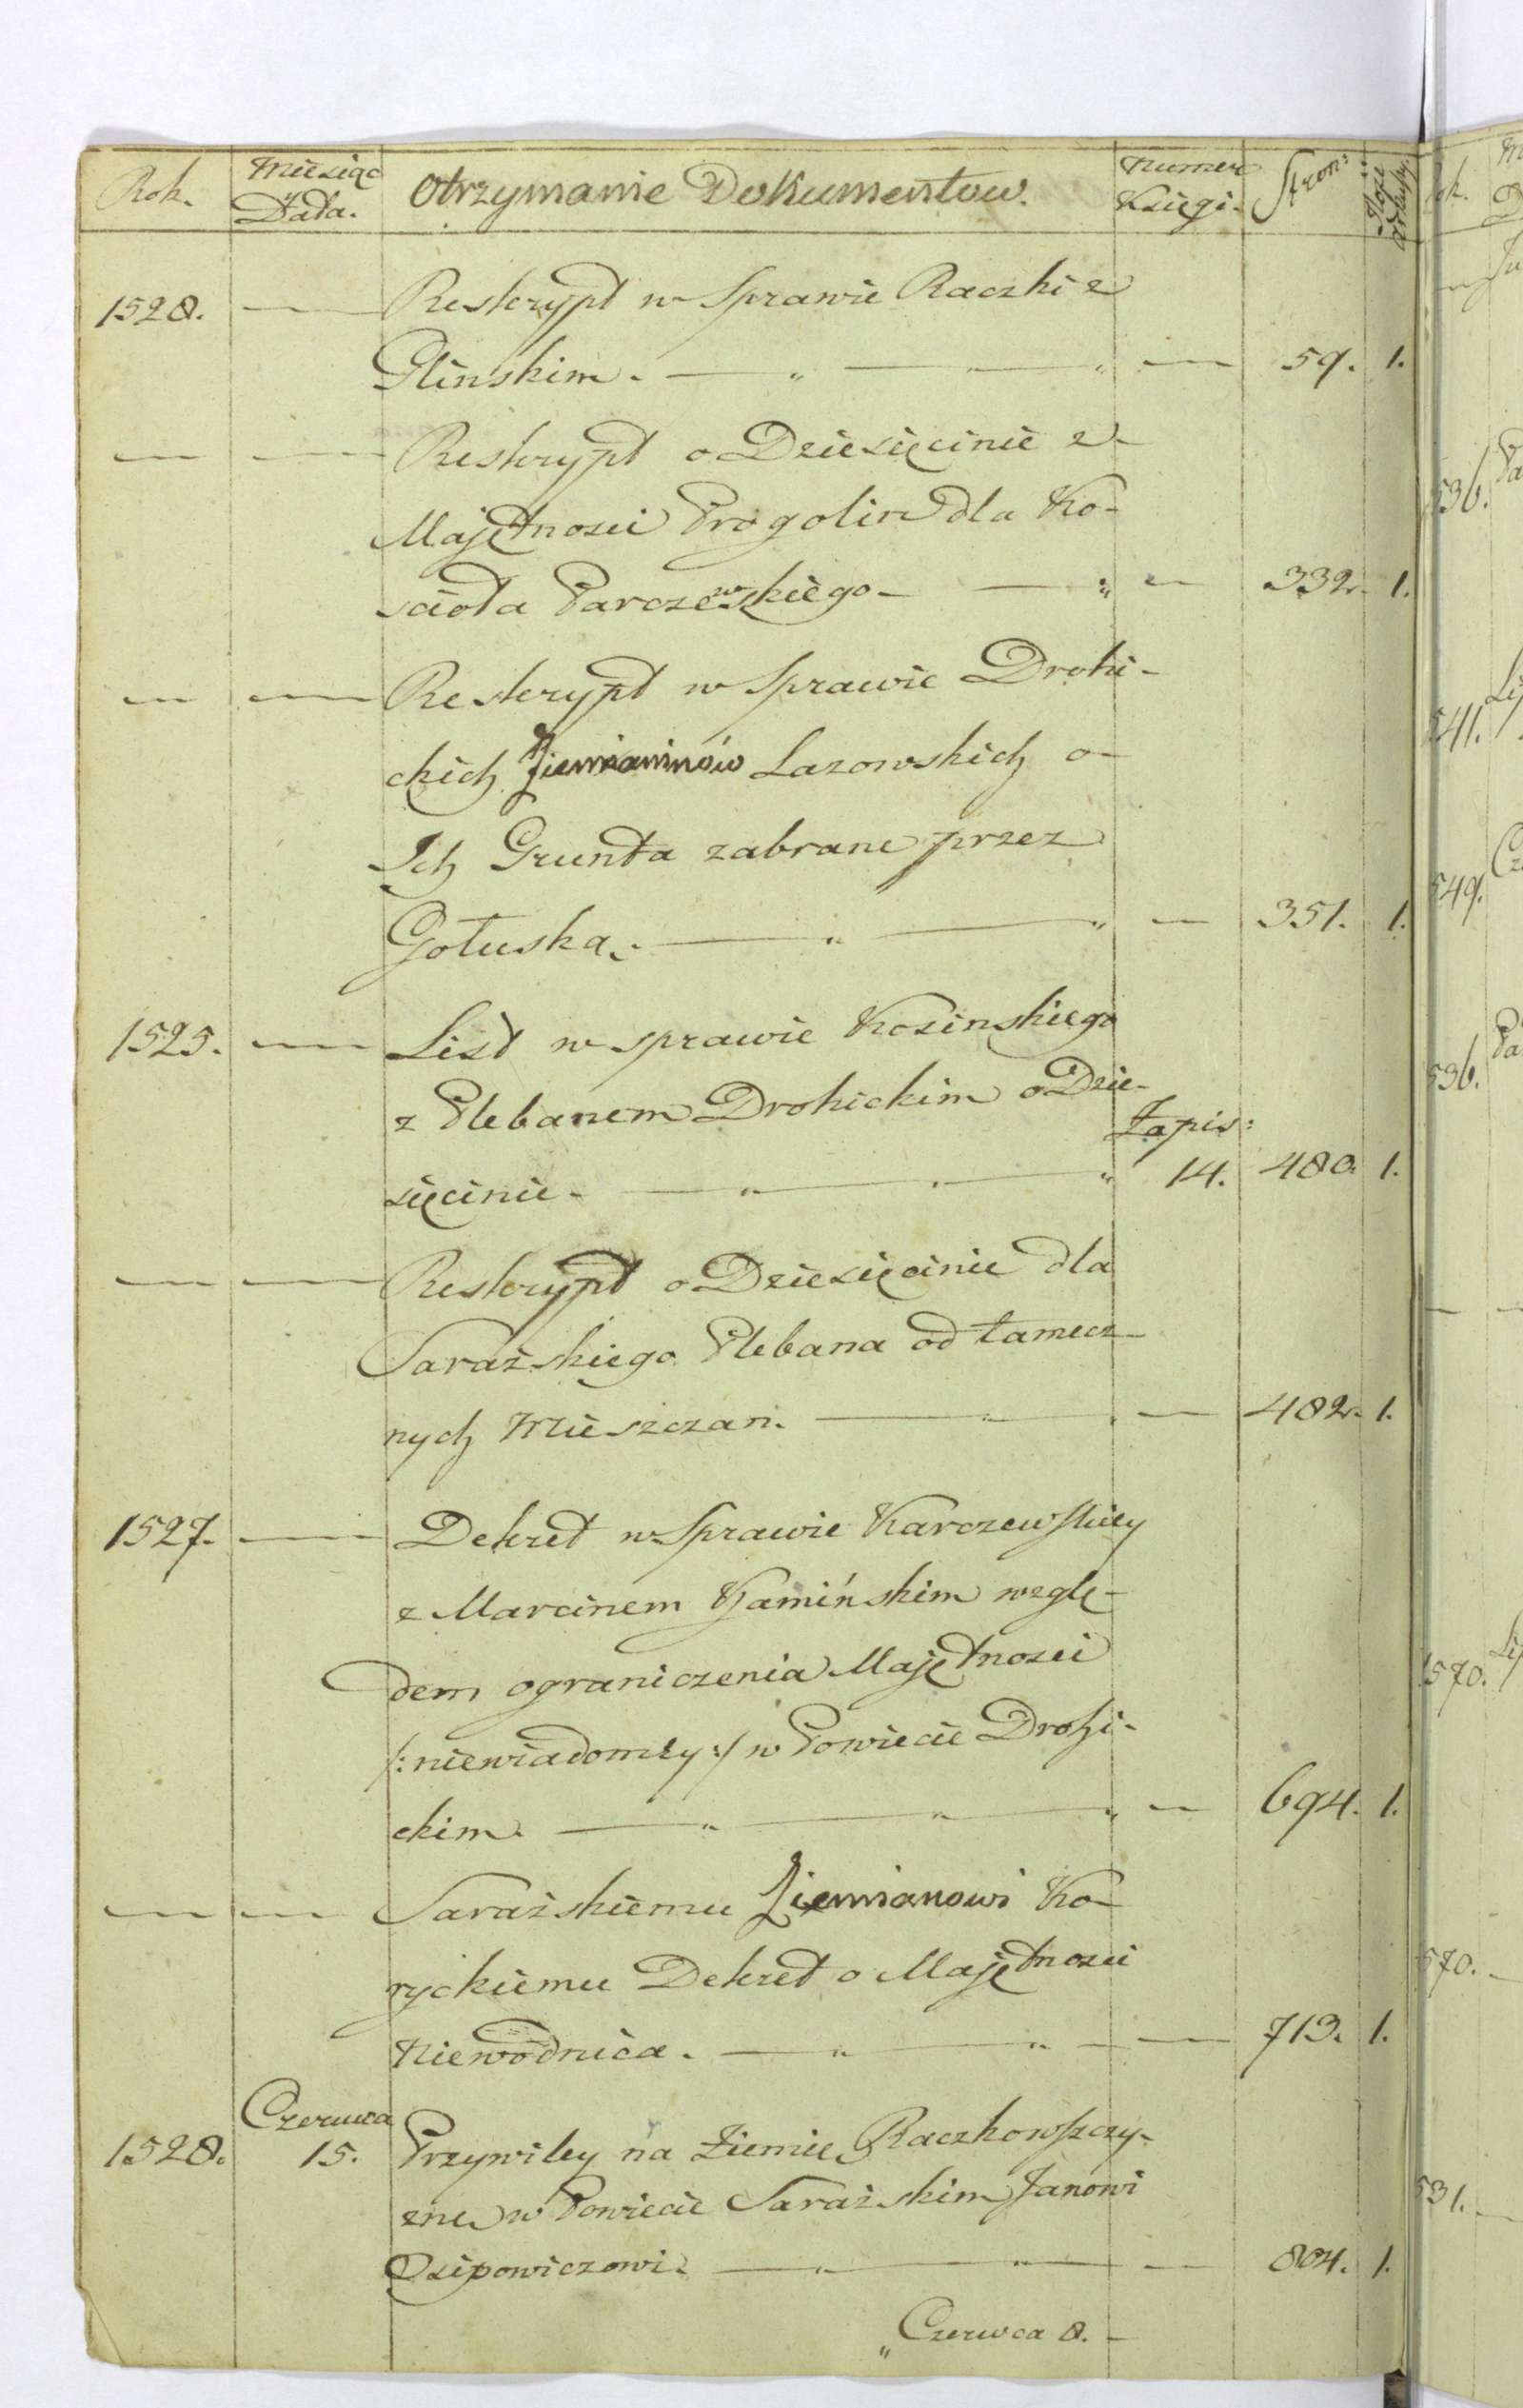 Rok. Miesiąc y Data. Otrzymanie Dokumentow. Numer Księgi. Stron:
1528. — Reskrypt w Sprawie Raczki z
Glinskim. — „ — „ — 59. 1.
— — Reskrypt o Dziesięcinie z
Majętnosci Progolin dla Ko-
scioła Parczewskiego — „ — 332. 1.
— — Reskrypt w Sprawie Drohi-
ckich Ziemianinów Lazowskich o
Ich Grunta zabrane przez
Gołuska. — „ — „ — 351. 1.
1525. — List w sprawie Kosinskiego
z Plebanem Drohickim o Dzie-
Zapis:
sięcinie. — „ — „ 14. 480. 1.
— — Reskrypt o Dziesięcinie dla
Saraźskiego Plebana od tamecz-
nych Mieszczan. — „ — 482. 1.
1527. — Dekret w Sprawie Karczewskiey
z Marcinem Kamińskim wzglę-
dem ograniczenia Majętnosci
/: niewiadomey :/ w Powiecie Drohi-
ckim. — „ — „ — „ — 694. 1.
— — Saraźskiemu Ziemianowi Ko-
ryckiemu Dekret o Majętnosci
Niewodnica. — „ — „ — 713. 1.
Czerwca
1528. 15. Przywiley na Ziemie Raczkowszczy-
zne w Powiecie Saraźskim Janowi
Osipowiczowi. — „ — „ — 804. 1.
„ Czerwca 8. —
536.
541.
549.
536.
1570.
570.
531.